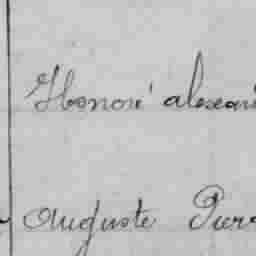 Honoré alexan
Auguste Pierr